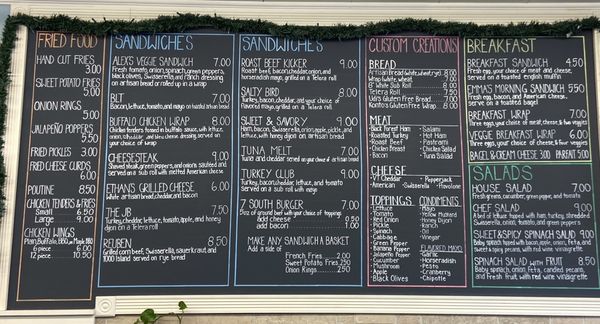 FRIED FOOD
HAND CUT FRIES
3.00
SWEET POTATO FRIES
5.00
ONION RINGS
5.00
JALAPEÑO POPPERS
5.50
FRIED PICKLES 3.00
FRIED CHEESE CURDS
6.00
POUTINE 8.50
CHICKEN TENDERS & FRIES
Small 6.50
Large 9.00
CHICKEN WINGS
Plain, Buffalo, BBQ,
6 piece 6.00
12 piece 10.50
SANDWICHES
ALEX'S VEGGIE SANDWICH 7.00
Fresh tomato, onion, spinach, green peppers,
black olives, Swiss, and ranch dressing
on artisan bread or rolled up in a wrap
BLT 7.00
Bacon, lettuce, tomato, and mayo on toasted artisan bread
BUFFALO CHICKEN WRAP 8.00
Chicken tenders tossed in buffalo sauce, with lettuce,
onion, cheddar, and bleu cheese dressing, served on
your choice of wrap
CHEESESTEAK 9.00
Shaved steak, green peppers, and onions sautéed and
served on a sub roll with melted American cheese
ETHAN'S GRILLED CHEESE 6.00
White artisan bread, cheddar, and bacon
THE JB 7.50
Turkey, cheddar, lettuce, tomato, apple, and honey
dijon on a Telera roll
REUBEN 8.50
Grilled corn beef, Swiss, sauerkraut, and
1000 Island served on rye bread
SANDWICHES
ROAST BEEF KICKER 9.00
Roast beef, bacon, cheddar, onion, and
horseradish mayo, grilled on a Telera roll
SALTY BIRD 8.00
Turkey, bacon, cheddar, and your choice of
flavored mayo, grilled on a Telera roll
SWEET & SAVORY 9.00
Ham, bacon, Swiss, onion, apple, pickle, and
honey dijon on artisan bread
TUNA MELT 7.00
Tuna and cheddar served on your choice of artisan bread
TURKEY CLUB 9.00
Turkey, bacon, cheddar, lettuce, and tomato
served on a sub roll with mayo
7 SOUTH BURGER 7.00
5oz of ground beef with your choice of toppings
add cheese 0.50
add bacon 1.00
MAKE ANY SANDWICH A BASKET
Add a side of
French Fries 2.00
Sweet Potato Fries 2.50
Onion Rings 2.50
CUSTOM CREATIONS
BREAD
Artisan Bread (white, wheat, rye) 8.00
Wrap (white, wheat) 8.00
8" White Sub Roll 8.00
Telera Roll 7.50
Udi's Gluten Free Bread 9.00
Kontos Gluten Free Wrap 8.00
MEAT
• Black Forest Ham • Salami
• Roasted Turkey • Hot Ham
• Roast Beef • Pastrami
• Chicken Breast • Chicken Salad
• Bacon • Tuna Salad
CHEESE
• VT Cheddar • Pepperjack
• American • Swiss • Provolone
TOPPINGS
• Lettuce
• Tomato
• Red Onion
• Pickle
• Spinach
• Carrot
• Cabbage
• Green Pepper
• Banana Pepper
• Jalapeño Pepper
• Cucumber
• Mushroom
• Apple
• Black Olives
CONDIMENTS
• Mayo
• Yellow Mustard
• Honey Dijon
• Ranch
• Oil
• Vinegar
FLAVORED MAYO
• Garlic
• Horseradish
• Pesto
• Cranberry
• Chipotle
BREAKFAST
BREAKFAST SANDWICH 4.50
Fresh egg, your choice of meat and cheese,
served on a toasted english muffin
EMMA'S MORNING SANDWICH 5.50
Fresh egg, bacon, and American cheese,
served on a toasted bagel
BREAKFAST WRAP 7.00
Three eggs, your choice of meat, cheese, & two veggies
VEGGIE BREAKFAST WRAP 6.00
Three eggs, your choice of cheese, & four veggies
BAGEL & CREAM CHEESE 3.00 PARFAIT 5.00
SALADS
HOUSE SALAD 7.00
Fresh greens, cucumber, green pepper, and tomato
CHEF SALAD 9.00
A bed of lettuce topped with ham, turkey, shredded
Swiss, cucumber, tomato, onion, and green peppers
SWEET & SPICY SPINACH SALAD 9.00
Baby spinach topped with bacon, apple, onion, feta, and
sweet & spicy pecans, with fresh fruit
SPINACH SALAD WITH FRUIT 8.50
Baby spinach, onion, feta, candied pecans, and
fresh fruit with red wine vinaigrette